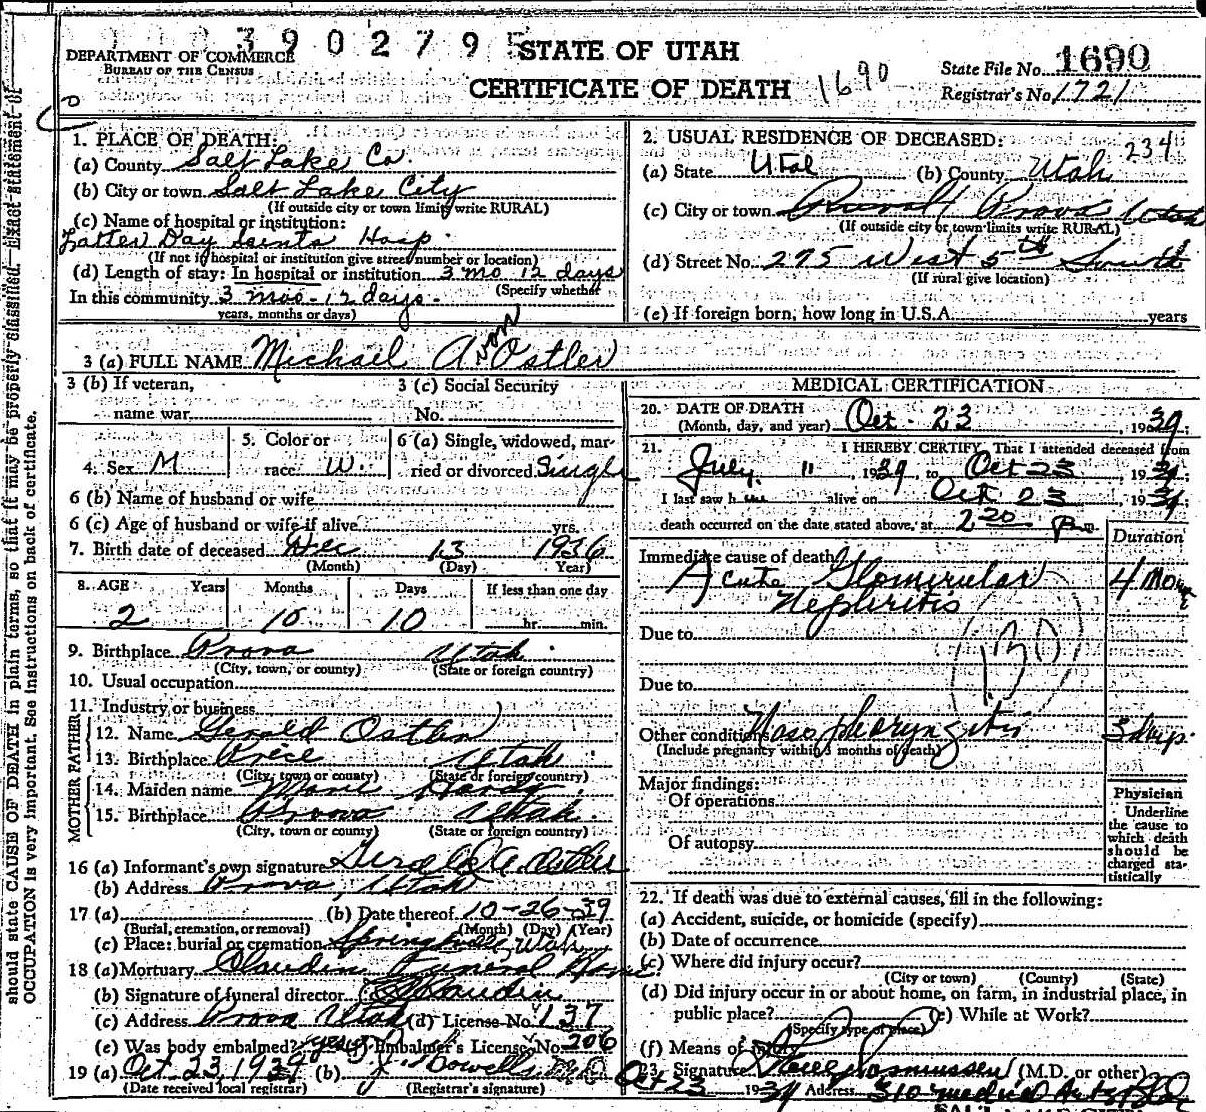 390279
STATE OF UTAH
CERTIFICATE OF DEATH
DEPARTMENT OF COMMERCE
BUREAU OF THE CENSUS
1690
State File No. 1690
Registrar's No. 1721
should state CAUSE OF DEATH in plain terms, so that it may be properly classified. Exact statement of
OCCUPATION is very important. See instructions on back of certificate.
1. PLACE OF DEATH:
(a) County Salt Lake Co.
(b) City or town Salt Lake City
(If outside city or town limits write RURAL)
(c) Name of hospital or institution:
Latter Day Saints Hosp.
(If not in hospital or institution give street number or location)
(d) Length of stay: In hospital or institution 3 mo 12 days
(Specify whether
In this community 3 mos - 12 days -
years, months or days)
2. USUAL RESIDENCE OF DECEASED:
234
(a) State Utah (b) County Utah
(c) City or town Rural Provo Utah
(If outside city or town limits write RURAL)
(d) Street No. 275 West 5th South
(If rural give location)
(e) If foreign born, how long in U.S.A. years
3 (a) FULL NAME Michael Avon Ostler
3 (b) If veteran,
name war
3 (c) Social Security
No.
4. Sex M
5. Color or
race W.
6 (a) Single, widowed, mar-
ried or divorced Single
6 (b) Name of husband or wife
6 (c) Age of husband or wife if alive yrs.
7. Birth date of deceased Dec 13 1936
(Month) (Day) (Year)
8. AGE Years Months Days If less than one day
2 10 10 hr. min.
9. Birthplace Provo Utah
(City, town, or county) (State or foreign country)
10. Usual occupation
11. Industry or business
FATHER
12. Name Gerald Ostler
13. Birthplace Price Utah
(City, town or county) (State or foreign country)
MOTHER
14. Maiden name Marie Hardy
15. Birthplace Provo Utah.
(City, town or county) (State or foreign country)
16 (a) Informant's own signature Gerald A. Ostler
(b) Address Provo, Utah
17 (a) (b) Date thereof 10-26-39
(Burial, cremation, or removal) (Month) (Day) (Year)
(c) Place: burial or cremation Springville, Utah
18 (a) Mortuary Claudin Funeral Home
(b) Signature of funeral director Claudin
(c) Address Provo Utah (d) License No. 137
(e) Was body embalmed? yes Embalmer's License No. 206
19 (a) Oct 23, 1939 (b)
(Date received local registrar) (Registrar's signature)
MEDICAL CERTIFICATION
20. DATE OF DEATH
(Month, day, and year) Oct - 23, 1939;
21. I HEREBY CERTIFY, That I attended deceased from
July 11, 1939, to Oct 23, 1939;
I last saw him alive on Oct 23, 1939;
death occurred on the date stated above, at 2 20 Pm
Duration
Immediate cause of death
Acute Glomirular 4 Mon
Nephritis
Due to
130
Due to
Other conditions Naso pharyngitis 3 days.
(Include pregnancy within 3 months of death)
Major findings:
Of operations
Of autopsy
Physician
Underline
the cause to
which death
should be
charged sta-
tistically
22. If death was due to external causes, fill in the following:
(a) Accident, suicide, or homicide (specify)
(b) Date of occurrence
(c) Where did injury occur?
(City or town) (County) (State)
(d) Did injury occur in or about home, on farm, in industrial place, in
public place? (e) While at Work?
(Specify type of place)
(f) Means of injury
23. Signature Rasmussen (M.D. or other)
Oct 23 1939 Address 310 Medical Arts Bldg